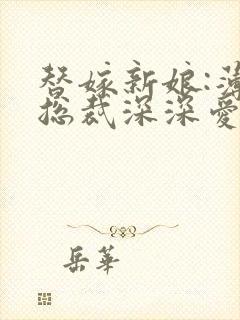 替嫁新娘:薄
总裁深深爱
岳華